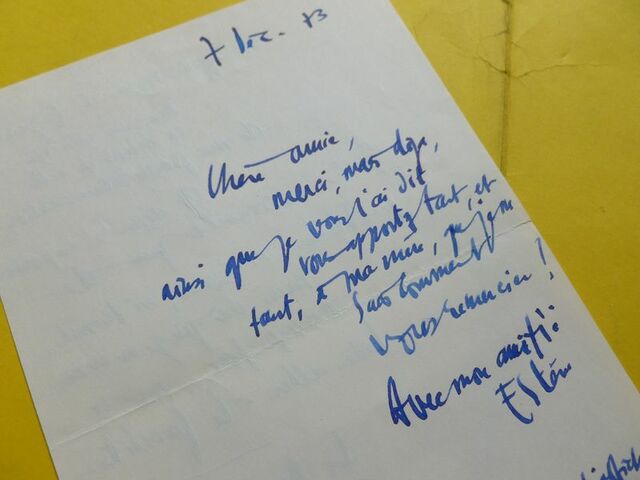 7 Déc. 73
Chère amie,
merci, mais déjà,
ainsi que je vous l'ai dit
vous apportez tant, et
tant, à ma mère, que je ne
sais comment
vous remercier !
Avec mon amitié
Estève